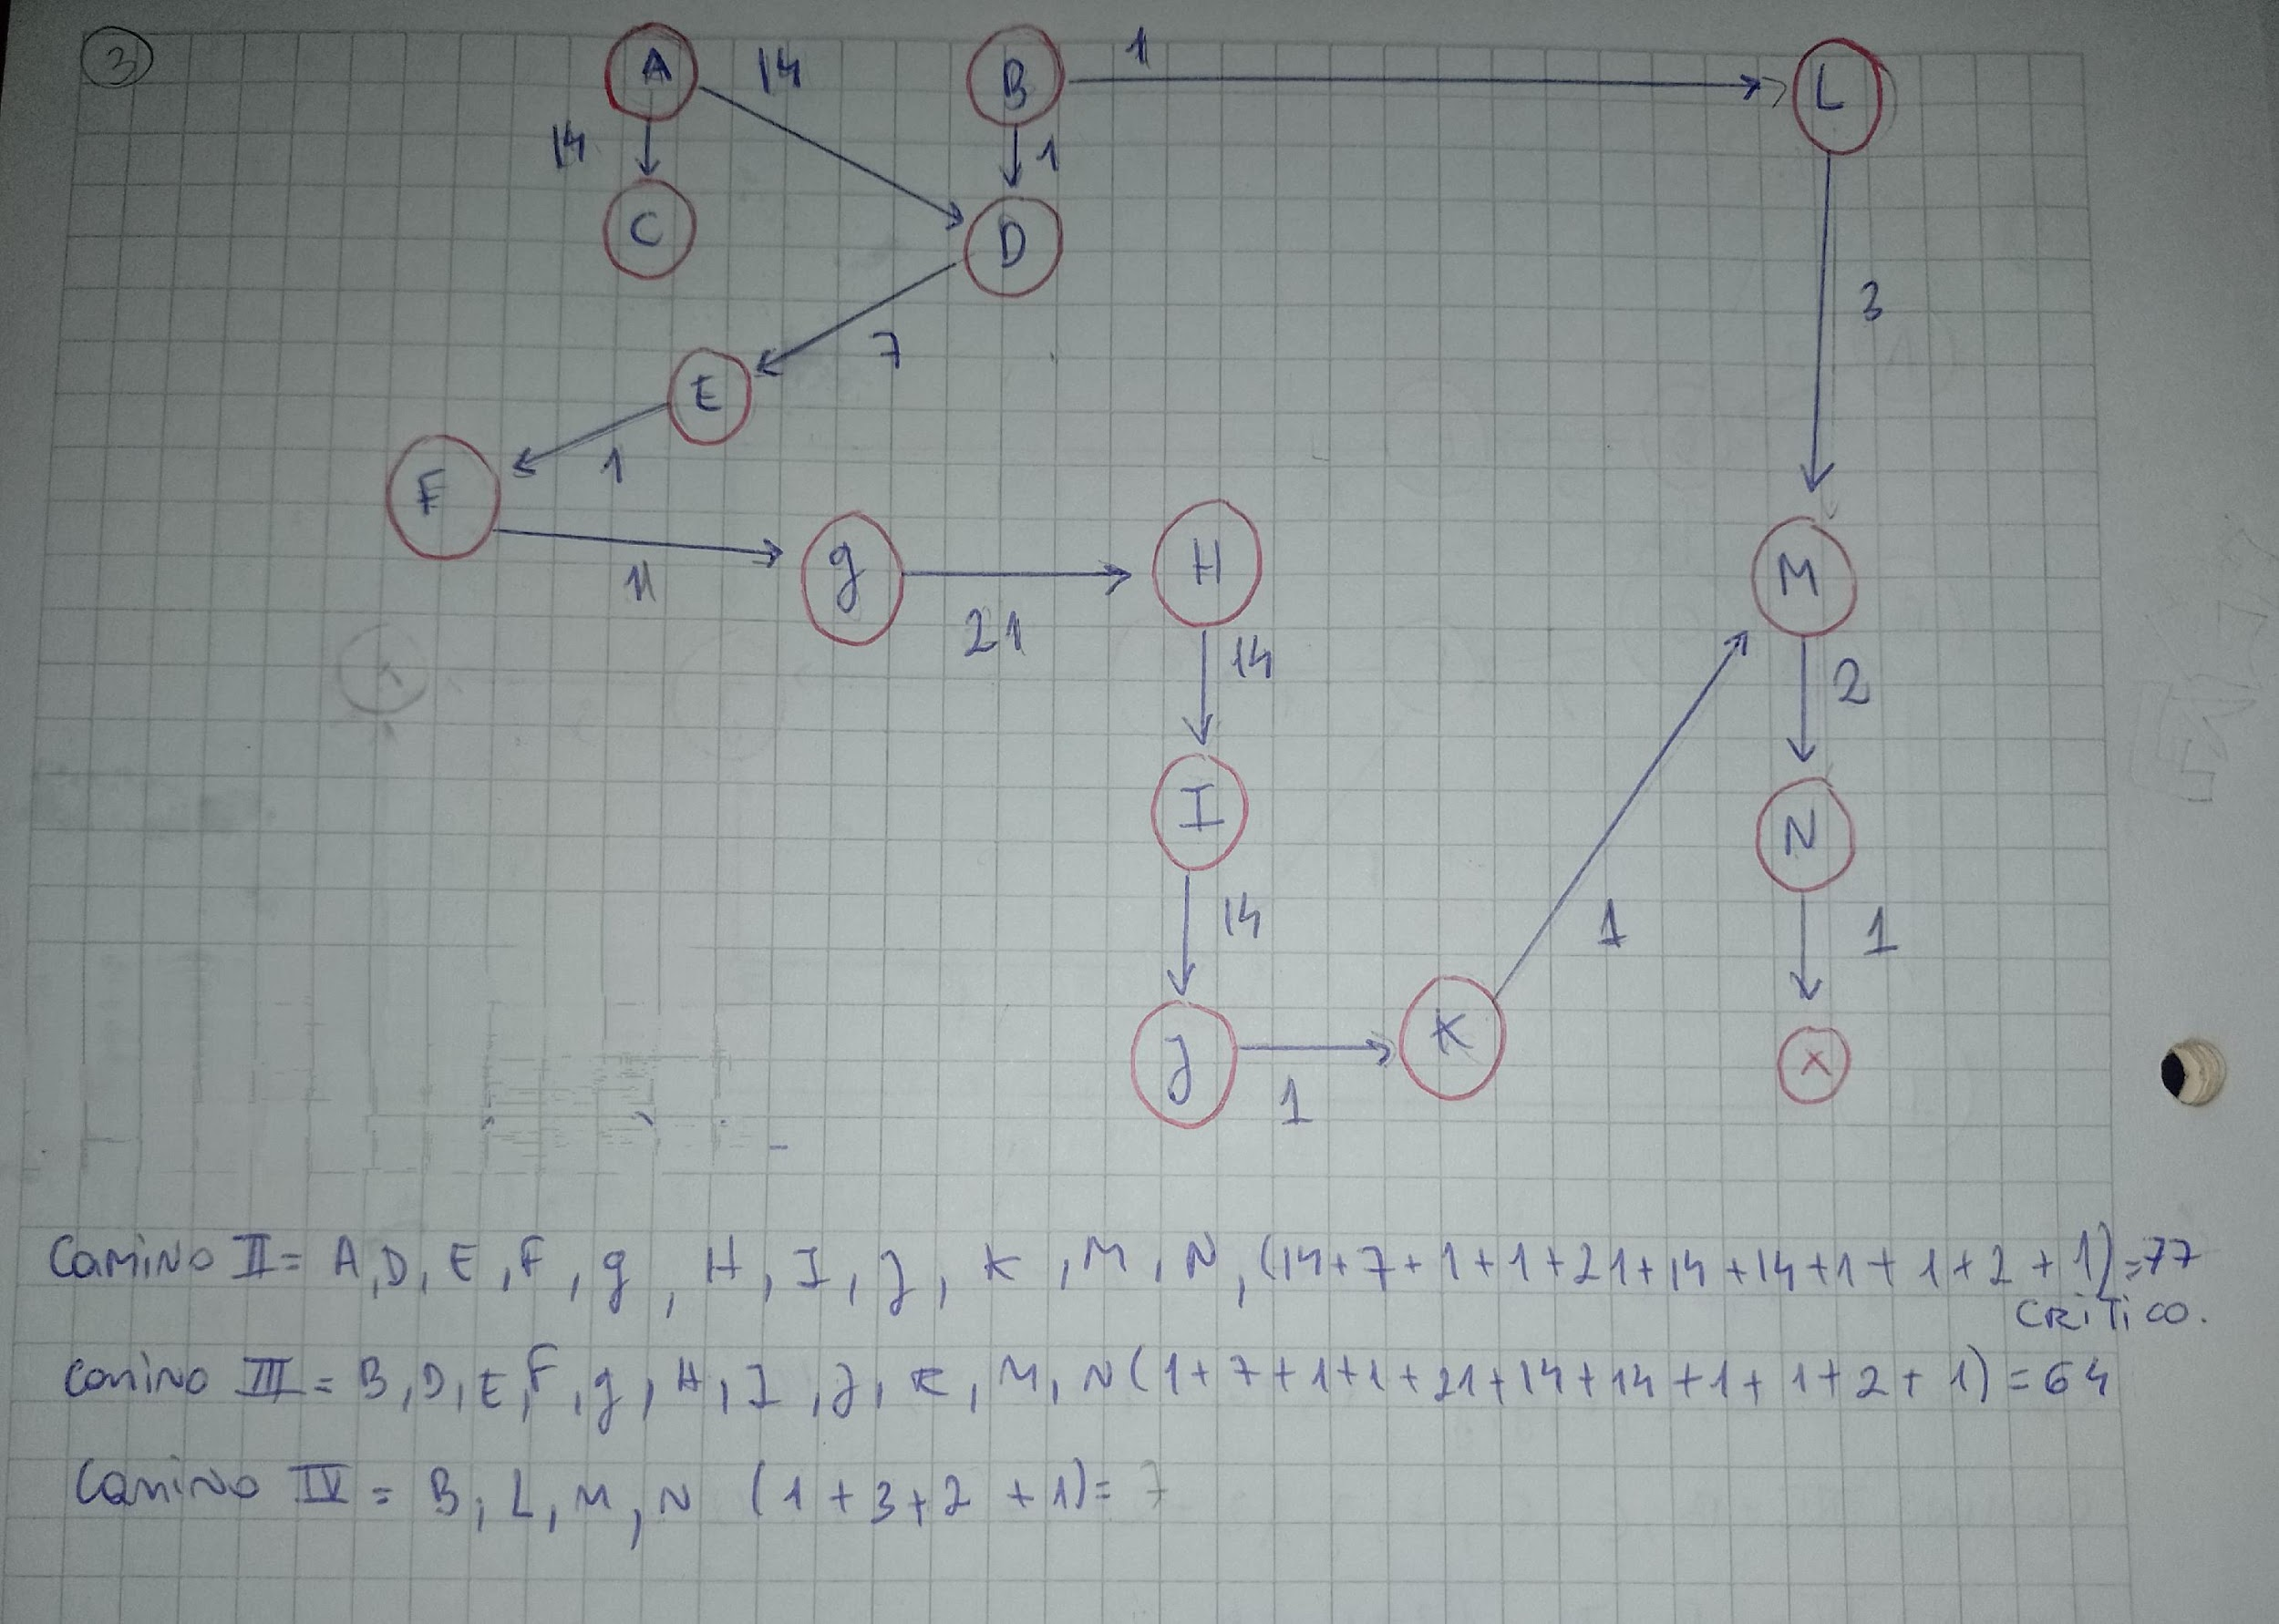 3
A 14 B 1 L
14 1
C D
3
7
E
1
F
g H M
11
21 14 2
I N
14 1
J K 1
X
1
Camino II = A, D, E, F, g, H, I, J, K, M, N, (14+7+1+1+21+14+14+1+1+2+1)=77
CRITICO.
Camino III = B, D, E, F, g, H, I, J, K, M, N (1+7+1+1+21+14+14+1+1+2+1)=64
Camino IV = B, L, M, N (1+3+2+1)= 7